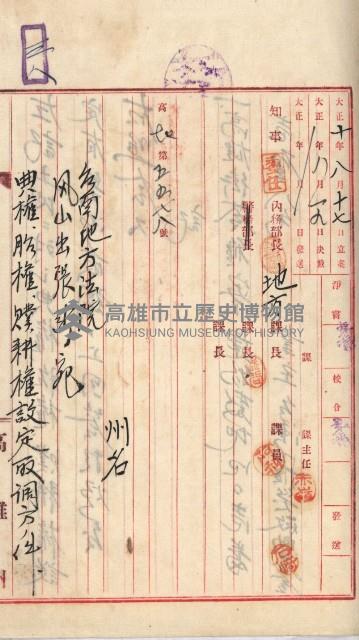 大正十年八月十七日立案
大正 年八月十九日決裁
大正 年 月 日發送
淨書
校合
發送
知事
委任
內務部長
地方課長
課員
課主任
警務部長
課長
課長
高地第五五八八號
州名
臺南地方法院
鳳山出張所宛
典權、胎權、贌耕權設定取調方ノ件
高雄州
高雄市立歷史博物館
KAOHSIUNG MUSEUM OF HISTORY